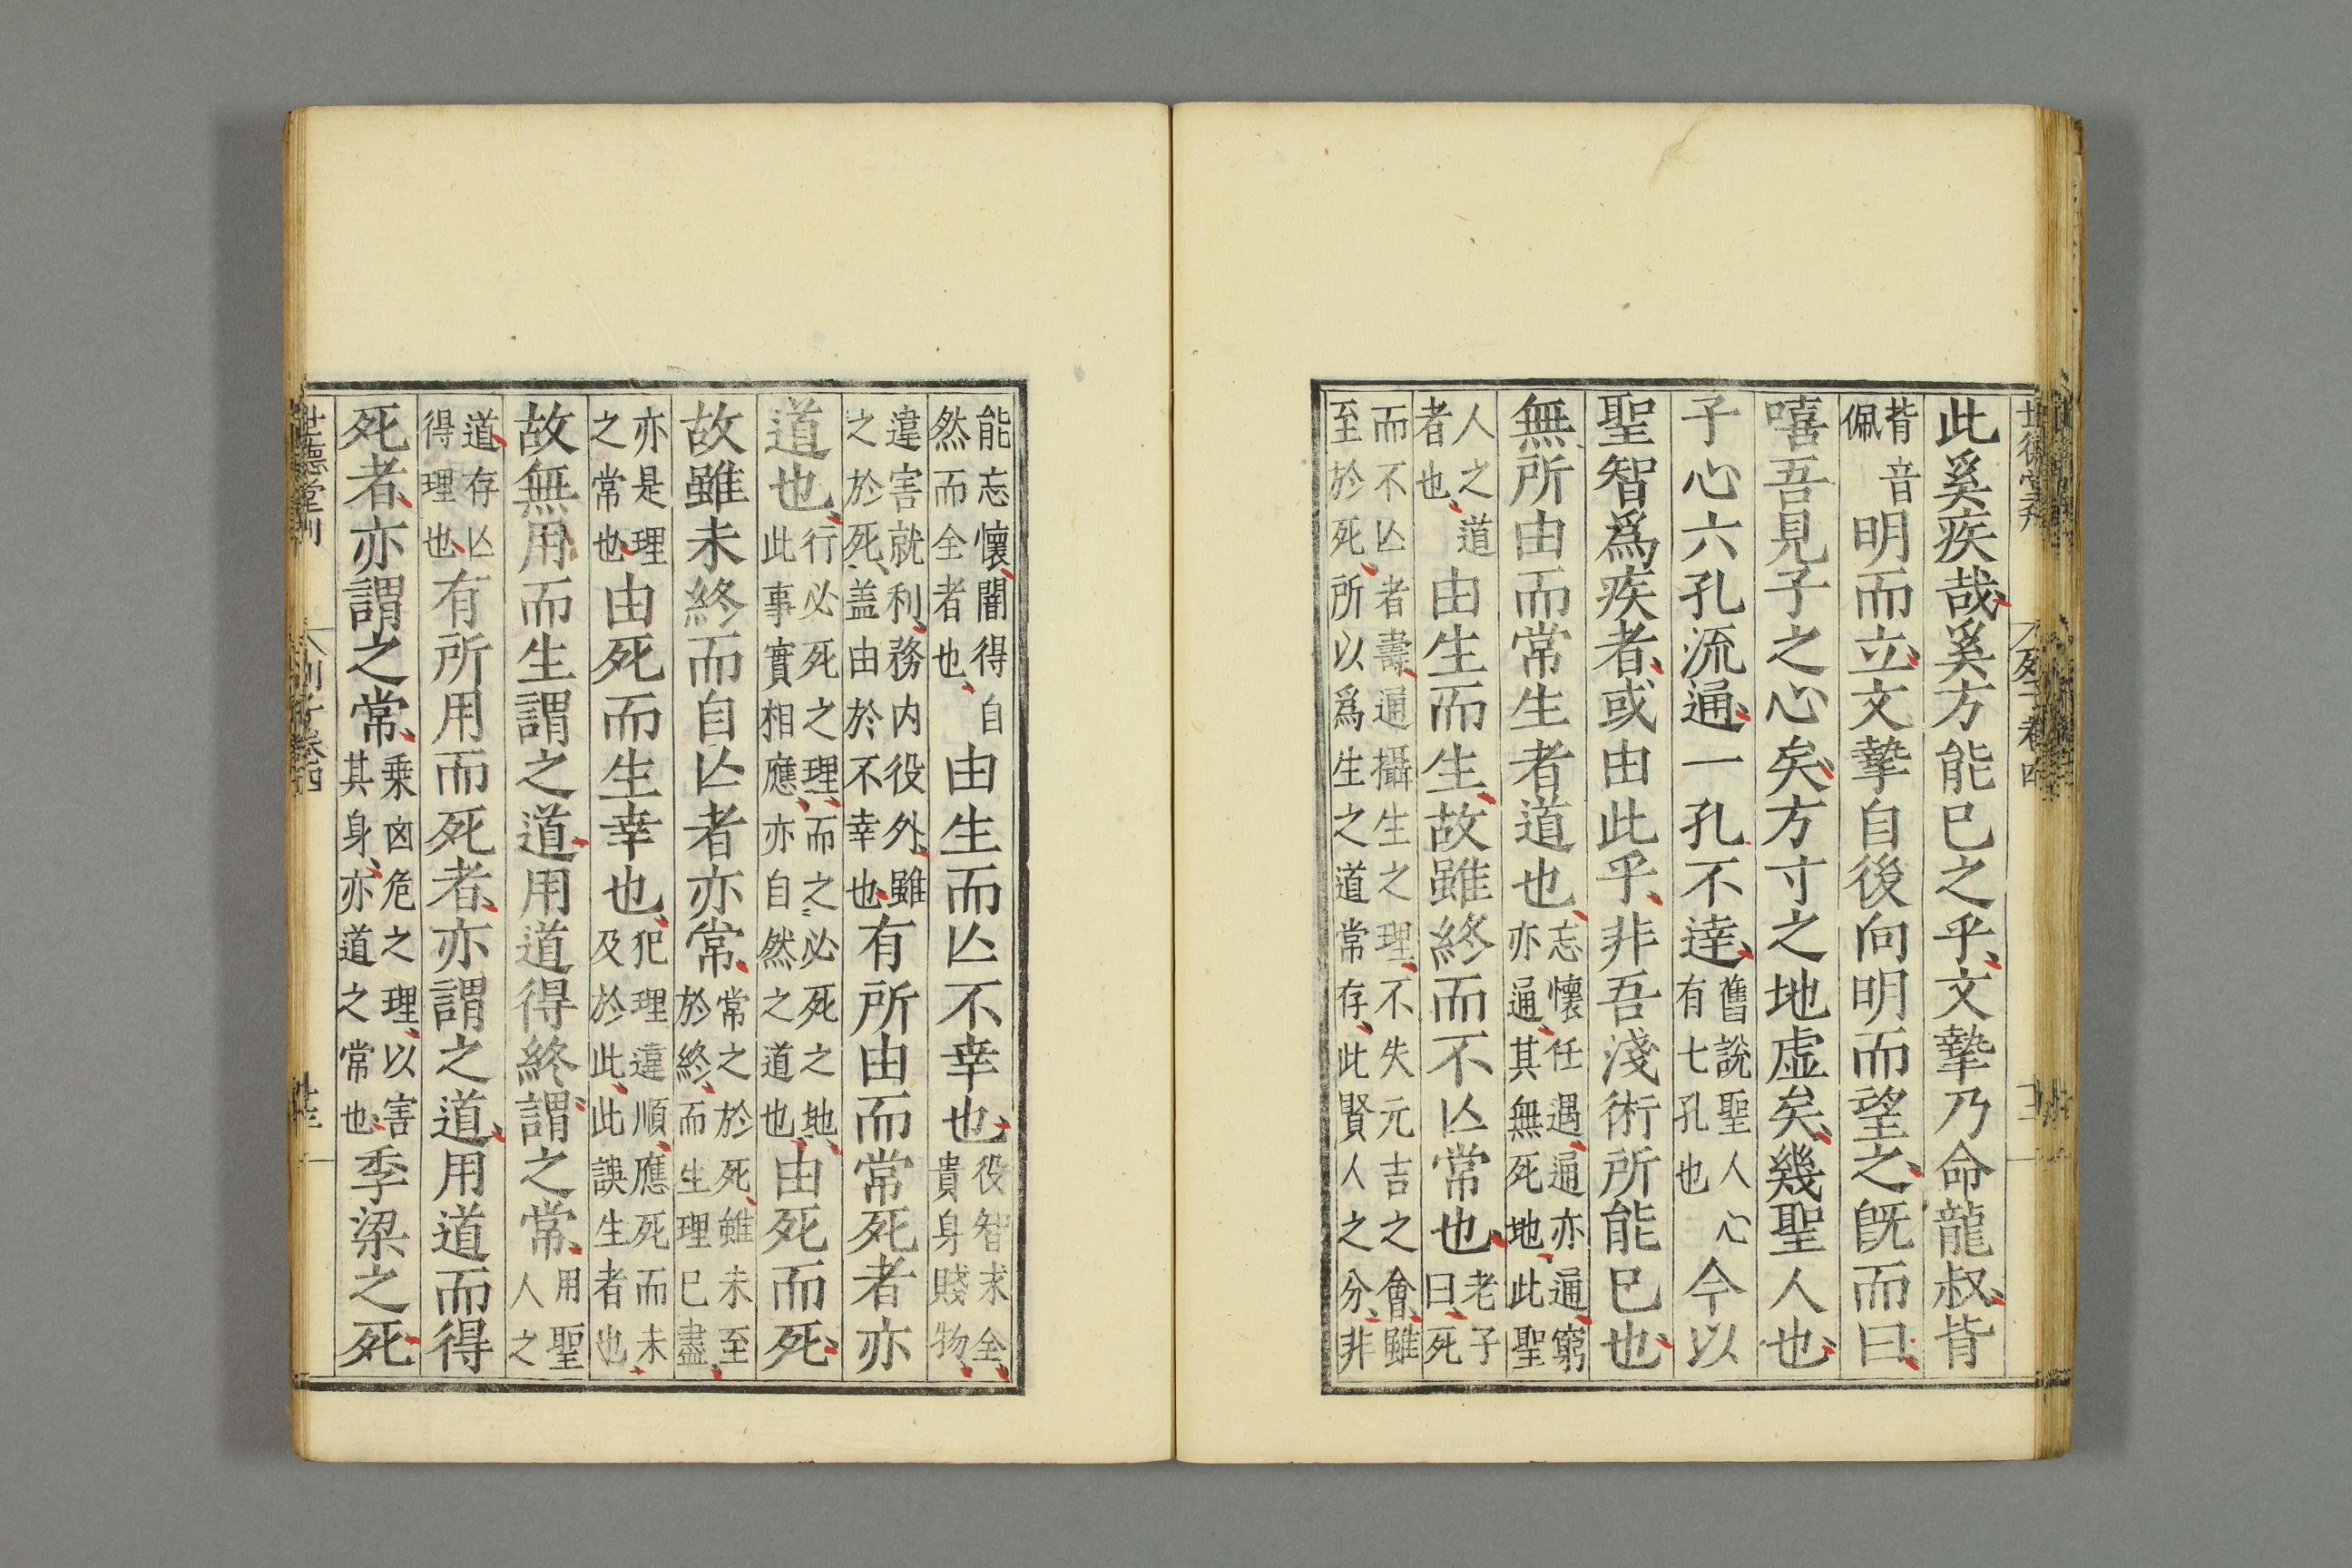 此奚疾哉奚方能已之乎文摯乃命龍叔背
背音佩明而立文摯自後向明而望之旣而曰
嘻吾見子之心矣方寸之地虛矣幾聖人也
子心六孔流通一孔不達舊說聖人心有七孔也今以
聖智爲疾者或由此乎非吾淺術所能已也
無所由而常生者道也忘懷任遇通亦通窮亦通其無死地此聖
人之道者也由生而生故雖終而不亾常也老子曰死
而不亾者壽通攝生之理不失元吉之會雖至於死所以爲生之道常存此賢人之分非
能忘懷闇得自然而全者也由生而亾不幸也役智求全貴身賤物
違害就利務内役外雖之於死盖由於不幸也有所由而常死者亦
道也行必死之理而之必死之地此事實相應亦自然之道也由死而死
故雖未終而自亾者亦常常之於死雖未至於終而生理已盡
亦是理之常也由死而生幸也犯理違順應死而未及於此此誤生者也
故無用而生謂之道用道得終謂之常用聖人之
道存亾得理也有所用而死者亦謂之道用道而得
死者亦謂之常乗凶危之理以害其身亦道之常也季梁之死
世德堂刊 列子卷四